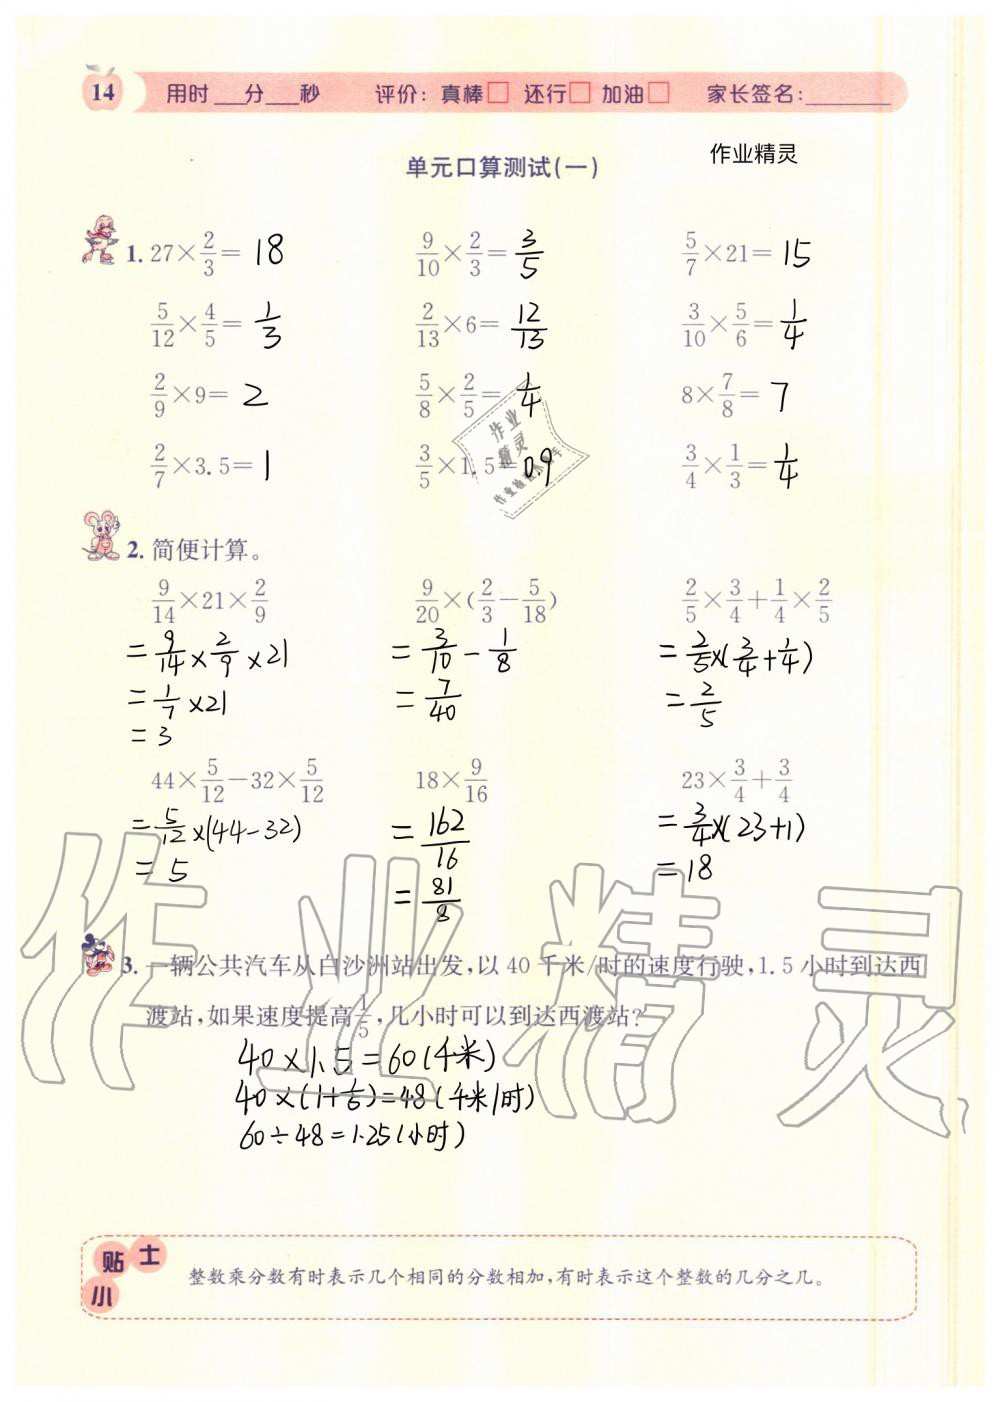 14 用时___分___秒 评价:真棒□ 还行□ 加油□ 家长签名:________
单元口算测试(一) 作业精灵
1. 27×2/3= 18 9/10×2/3= 3/5 5/7×21= 15
5/12×4/5= 1/3 2/13×6= 12/13 3/10×5/6= 1/4
2/9×9= 2 5/8×2/5= 1/4 8×7/8= 7
2/7×3.5= 1 3/5×1.5= 0.9 3/4×1/3= 1/4
2. 简便计算。
9/14×21×2/9 9/20×(2/3-5/18) 2/5×3/4+1/4×2/5
=9/14×2/9×21 =3/10-1/8 =2/5×(3/4+1/4)
=1/7×21 =7/40 =2/5
=3
44×5/12-32×5/12 18×9/16 23×3/4+3/4
=5/12×(44-32) =162/16 =3/4×(23+1)
=5 =81/8 =18
3. 一辆公共汽车从白沙洲站出发,以40千米/时的速度行驶,1.5小时到达西
渡站,如果速度提高1/5,几小时可以到达西渡站?
40×1.5=60(千米)
40×(1+1/5)=48(千米/时)
60÷48=1.25(小时)
小贴士
整数乘分数有时表示几个相同的分数相加,有时表示这个整数的几分之几。
作业精灵
作业精灵